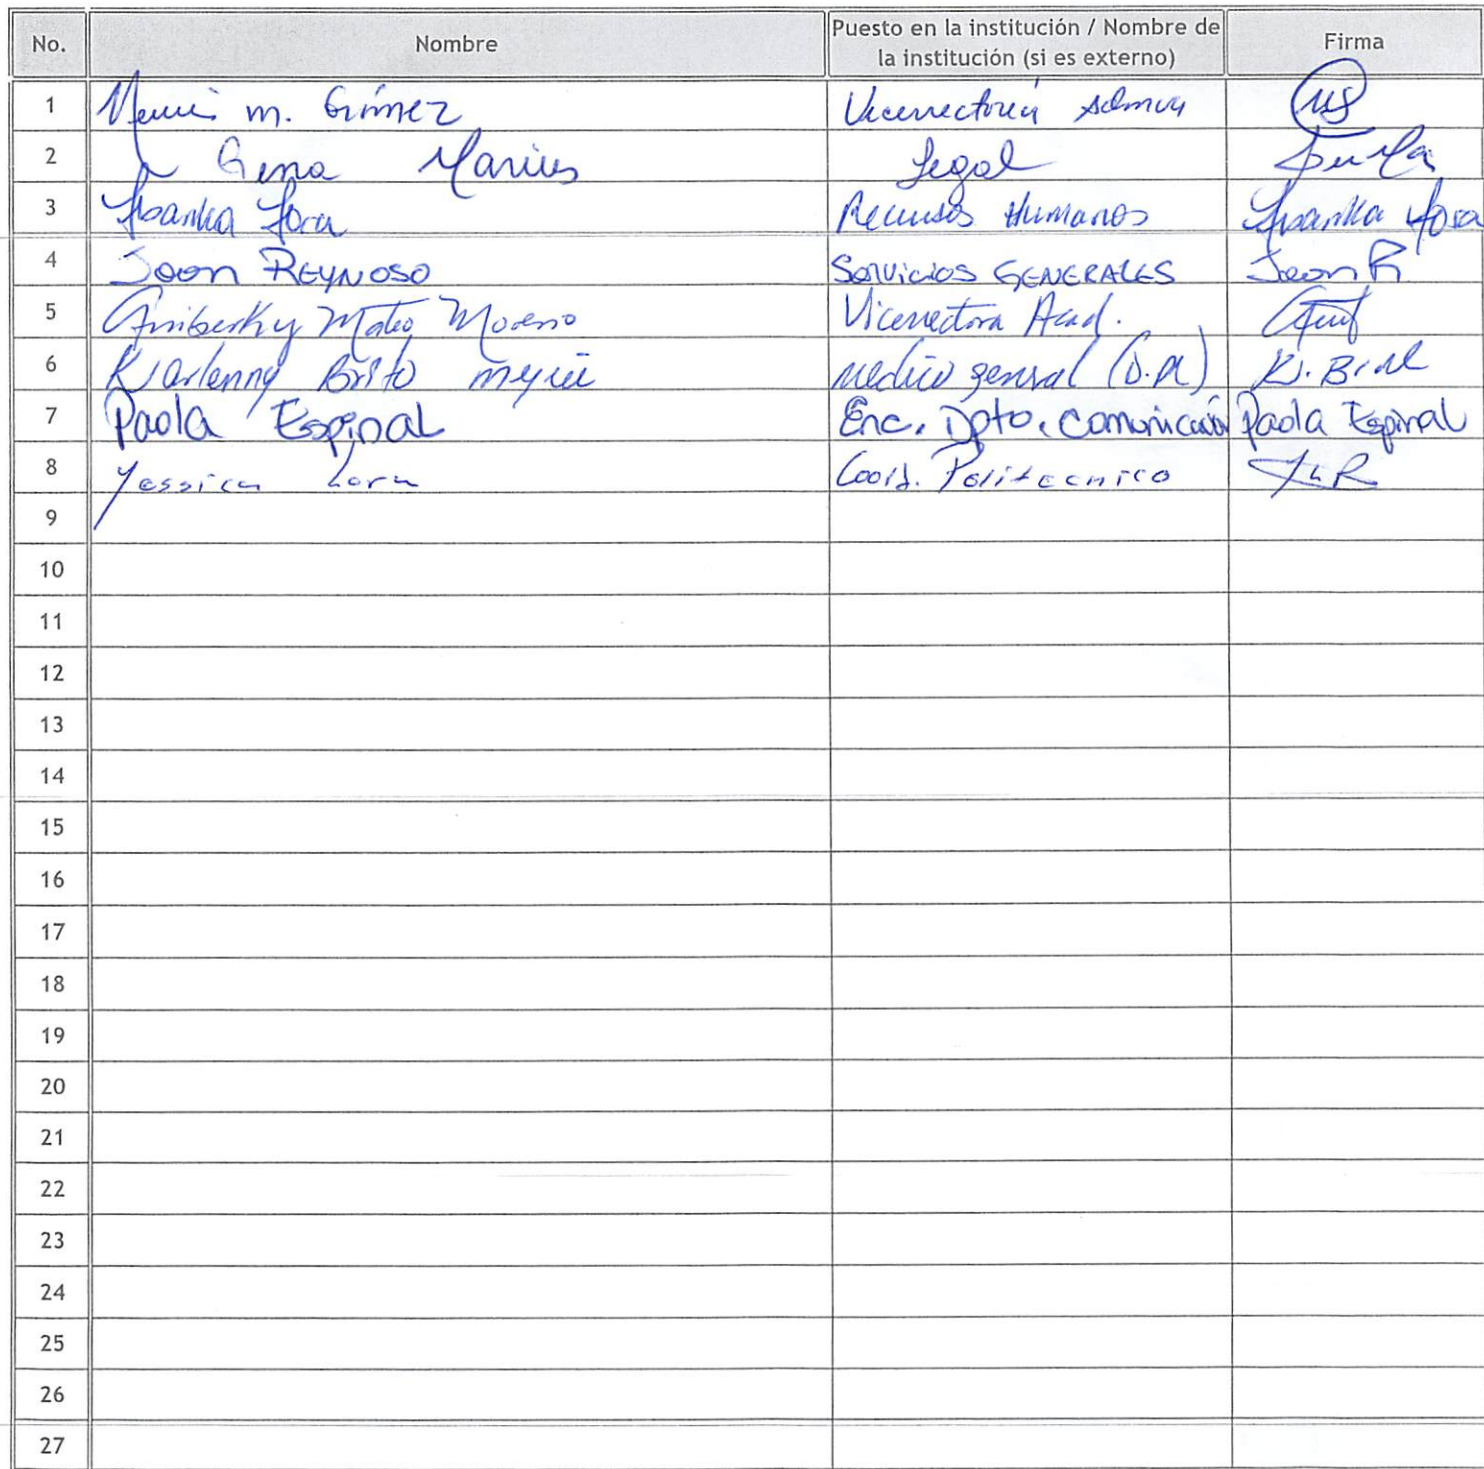 No. Nombre Puesto en la institución / Nombre de la institución (si es externo) Firma
1 m. Gómez Vicerrectoría Admva
2 Gema Legal
3 Lora Recursos Humanos Lora
4 Jeon REYNOSO Servicios GENERALES Jeon R
5 Mateo Moreno Vicerrectora Acad.
6 Karlenny Brito medico general (D.M)
7 Paola Espinal Enc. Dpto. Comunicación Paola Espinal
8 Yessica Lora Coord. Politecnico YLR
9
10
11
12
13
14
15
16
17
18
19
20
21
22
23
24
25
26
27